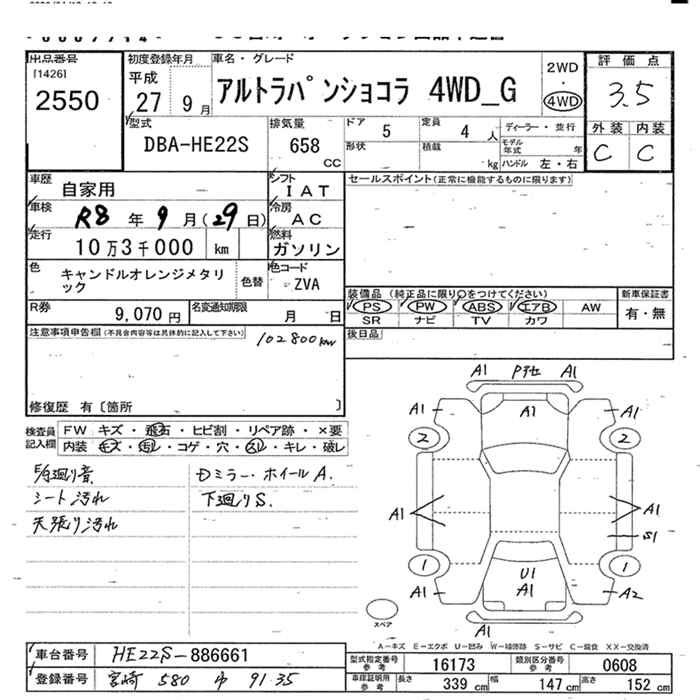 出品番号 初度登録年月 車名・グレード
[1426] 平成 2WD 評価点
2550 27 9月 アルトラパンショコラ 4WD_G 4WD 3.5
型式 排気量 ドア 5 定員 4人 ディーラー・並行 外装 内装
DBA-HE22S 658 CC 形状 積載 kg モデル年式 年 C C
ハンドル 左・右
車歴 自家用 シフト IAT セールスポイント(正常に機能するものに限ります)
車検 R8年9月(29日) 冷房 AC
走行 10万3千000 km 燃料 ガソリン
色 キャンドルオレンジメタリック 色替 色コード ZVA
装備品(純正品に限り○をつけてください) 新車保証書
R券 9,070円 名変通知期限 月 日 PS PW ABS エアB AW 有・無
SR ナビ TV カワ
注意事項申告欄(不具合内容等は具体的に記入して下さい) 102800km 後日品
修復歴 有〔箇所 〕
A1 Pチセ A1
A1 A1 A1
検査員記入欄 FW キズ・飛石・ヒビ割・リペア跡・×要
内装 キズ・汚レ・コゲ・穴・スレ・キレ・破レ
2 2
Dミラー・ホイールA.
シート汚れ 下廻りS.
天張り汚れ
A1 A1
S1
1 1
U1
A1 A1 A2
スペア
A−キズ E−エクボ U−凹み W−補修跡 S−サビ C−腐食 XX−交換済
車台番号 HE22S-886661 型式指定番号 参考 16173 類別区分番号 参考 0608
登録番号 宮崎 580 91-35 車庫証明用 参考 長さ 339cm 幅 147cm 高さ 152cm